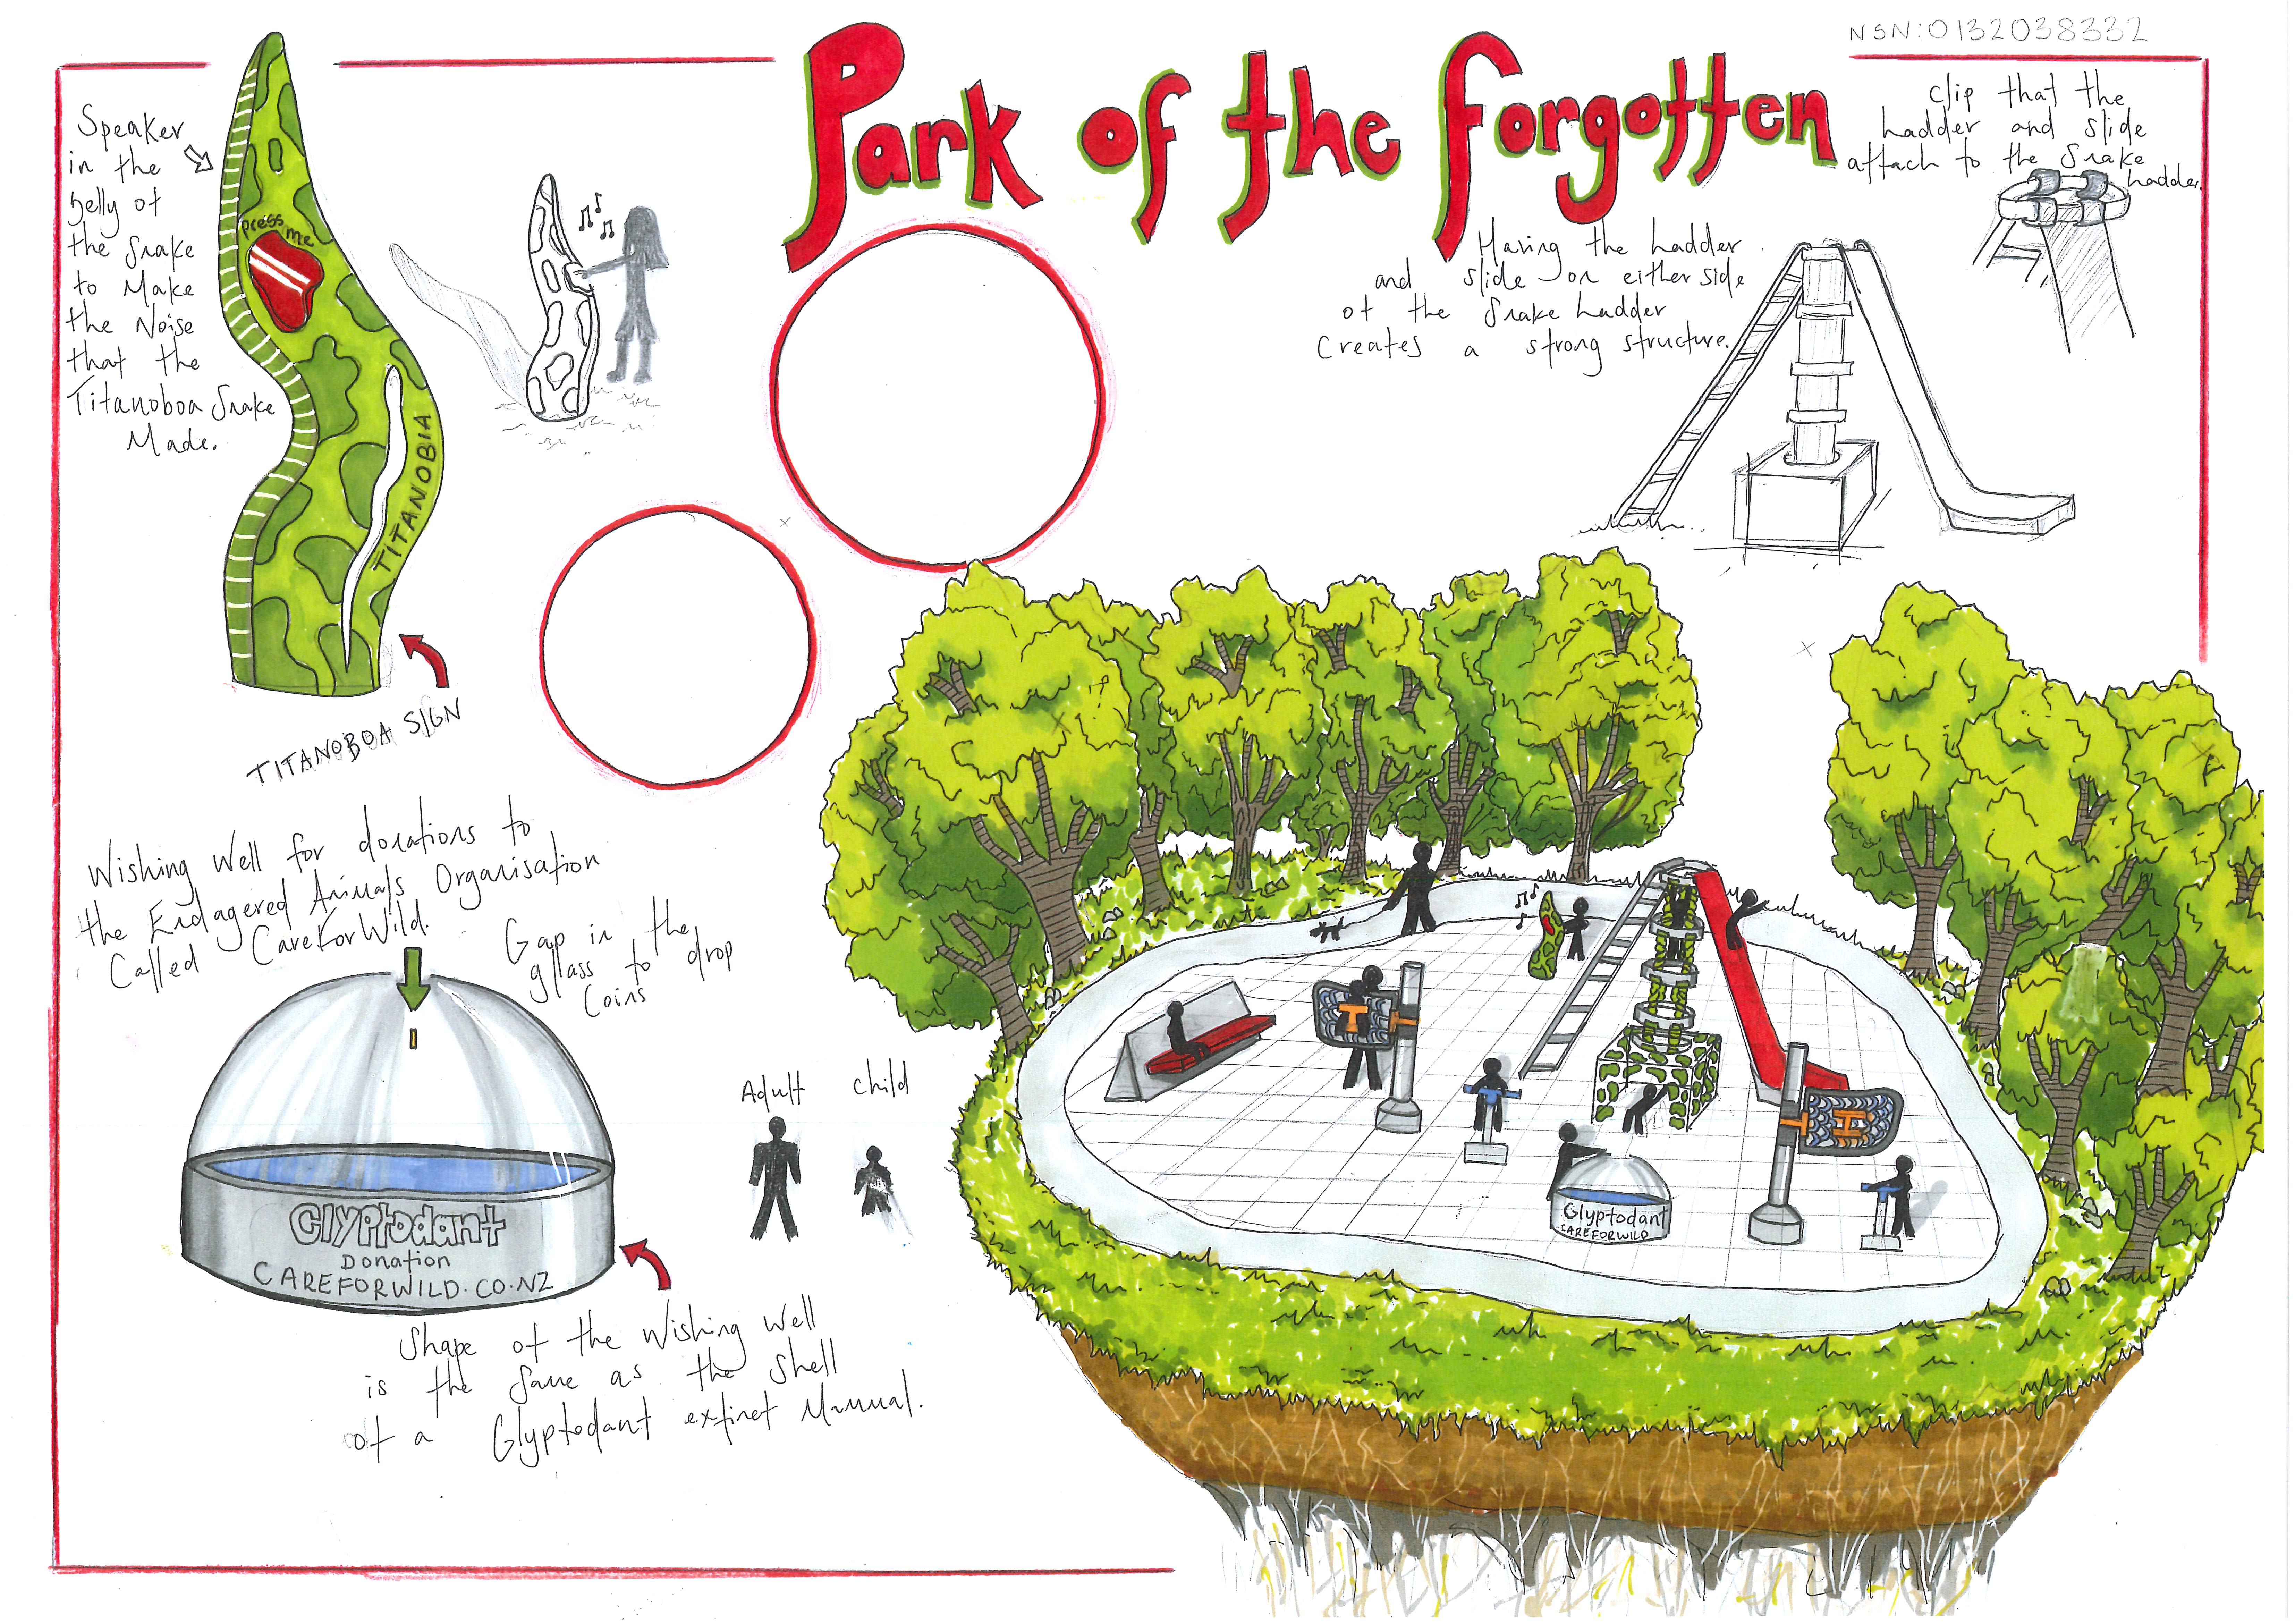 NSN:0132038332
Park of the forgotten
Speaker
in the
belly of
the Snake
to Make
the Noise
that the
Titanoboa Snake
Made.
press
me
TITANOBIA
TITANOBOA SIGN
Clip that the
Ladder and slide
attach to the Snake
Ladder.
Having the Ladder
and slide on either side
of the Snake Ladder
Creates a strong structure.
Wishing Well for donations to
the Endagered Animals Organisation
Called CareForWild.
Gap in the
glass to drop
Coins
Glyptodant
Donation
CAREFORWILD.CO.NZ
Adult
Child
Shape of the Wishing Well
is the Same as the Shell
of a Glyptodant extinct Mammal.
Glyptodant
CAREFORWILD